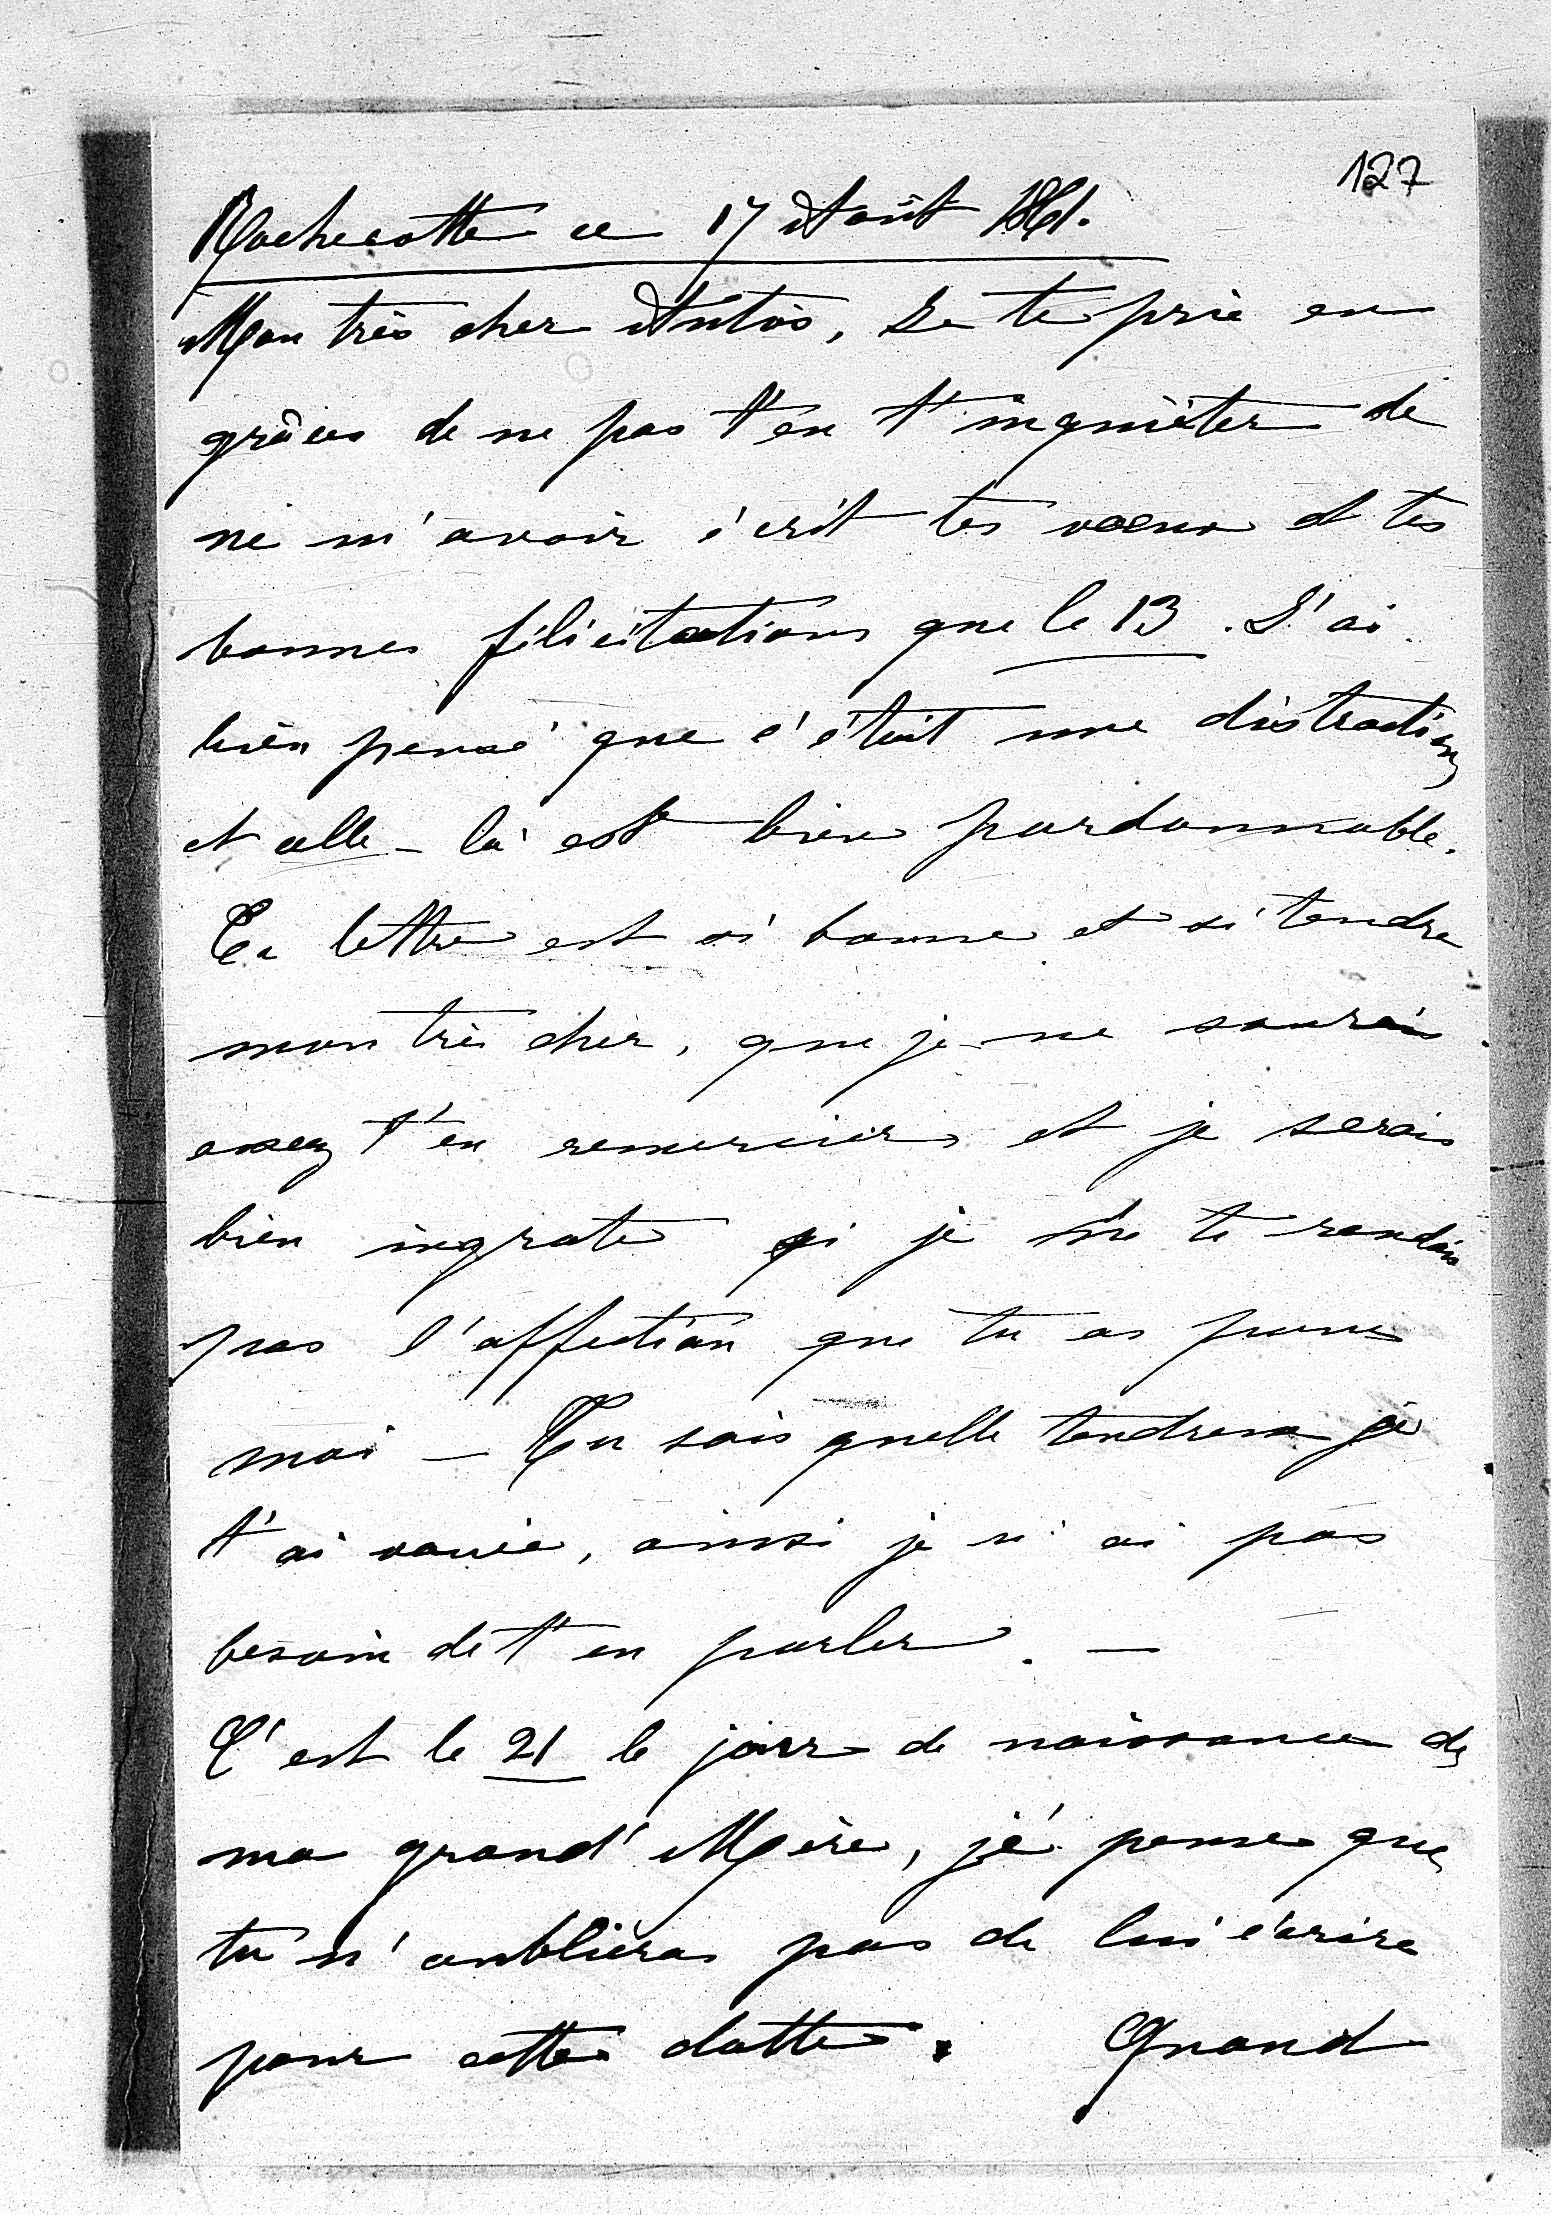 127
Rochecotte ce 17 Août 1861.
Mon très cher Antos, Je te prie en
grâces de ne pas t'en t'inquièter de
ne m'avoir écrit tes voeux et tes
bonnes félicitations que le 13. J'ai
bien pensé que c'était une distraction
et celle-là est bien pardonnable.
Ta lettre est si bonne et si tendre
mon très cher, que je ne saurais
assez t'en remercier et je serais
bien ingrate si je ne te rendais
pas l'affection que tu as pour
moi - Tu sais quelle tendresse je
t'ai vouée, ainsi je n'ai pas
besoin de t'en parler. -
C'est le 21 le jour de naissance de
ma grand' Mère, je pense que
tu n'oublieras pas de lui écrire
pour cette datte. Quand